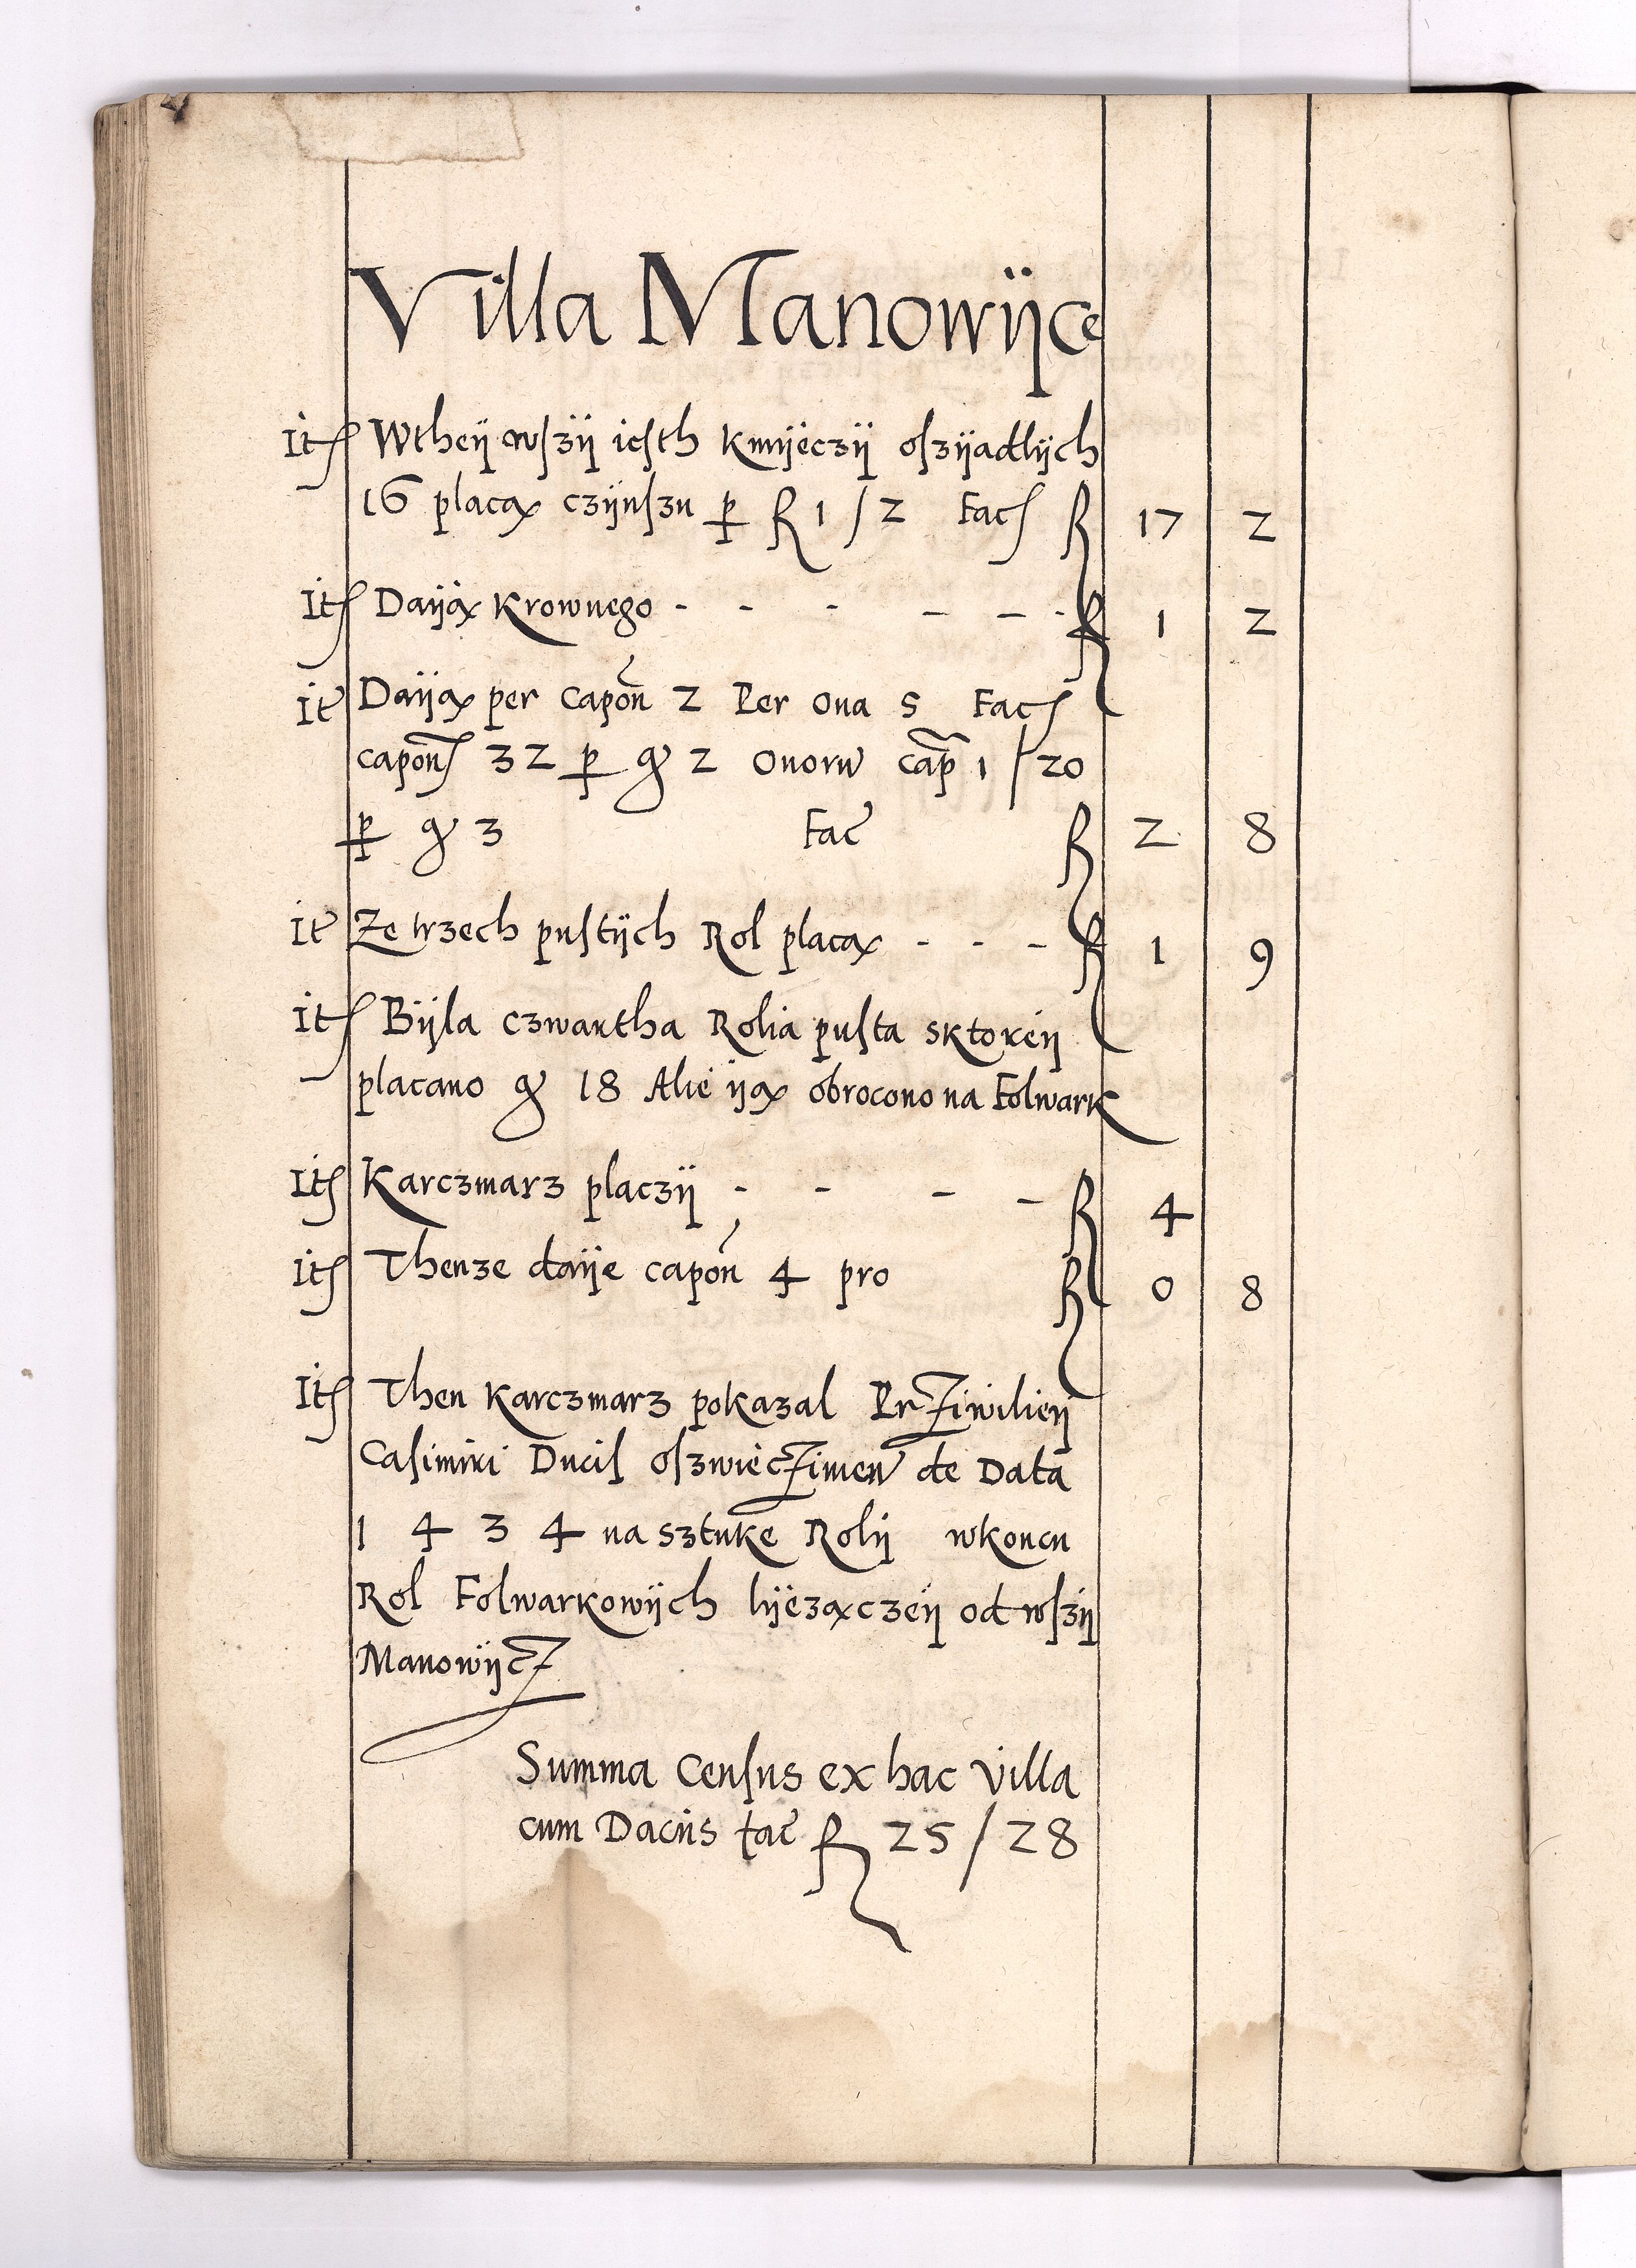 Villa Manowijce
Itſ Wtheÿ wſzÿ ieſth Kmÿeczÿ oſzÿadlÿch
16 placą czÿnſzu ꝑ fl 1 / 2 Facſ fl 17 2
Itſ Daÿą Krownego - - - - - - fl 1 2
It Daÿą per Capon̄ 2 Per Oua 5 Facſ
capon̄ſ 32 ꝑ gͬ 2 Ouorū cap̄ 1 / 20
ꝑ gͬ 3 Fac̄ fl 2 8
It Ze trzech puſtÿch Rol placą - - - fl 1 9
Itſ Bÿla czwartha Rolia puſta sktoreÿ
placano gͬ 18 Alie ÿą obrocono na Folwark
Itſ Karczmarz placzÿ - - - - fl 4
Itſ Thenze daÿe capon̄ 4 pro fl 0 8
Itſ Then Karczmarz pokazal Prziwilieÿ
Caſimiri Duciſ oſzwieczimen̄ de Data
1 4 3 4 na sztuke Rolÿ wkoncu
Rol Folwarkowÿch lÿezączeÿ od wſzÿ
Manowÿcz
Summa Cenſus ex hac Villa
cum Daciis fac̄ fl 25 / 28